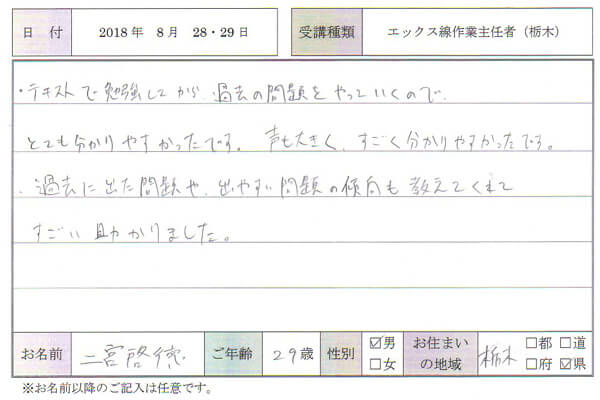 日付 2018年 8月 28・29日 受講種類 エックス線作業主任者（栃木）
・テキストで勉強してから、過去の問題をやっていくので、
とても分かりやすかったです。 声も大きく、すごく分かりやすかったです。
・過去に出た問題や、出やすい問題の傾向も教えてくれて
すごい助かりました。
お名前 二宮啓徳 ご年齢 29歳 性別 ☑男 □女 お住まいの地域 栃木 □都 □道 □府 ☑県
※お名前以降のご記入は任意です。